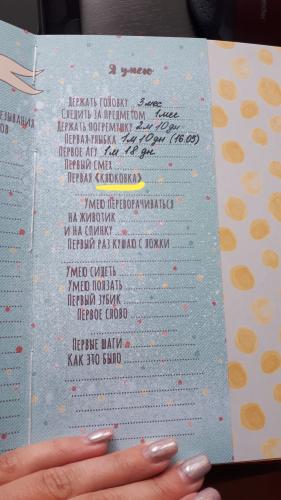 езывания
ов
Я умею
Держать головку 3 мес
Следить за предметом 1 мес
Держать погремушку 2 м 10 дн
Первая улыбка 1 м 10 дн (16.03)
Первое Агу 1 м 18 дн
Первый смех
Первая «клюковка»
Умею переворачиваться
на животик
и на спинку
Первый раз кушаю с ложки
Умею сидеть
Умею ползать
Первый зубик
Первое слово
Первые шаги
Как это было